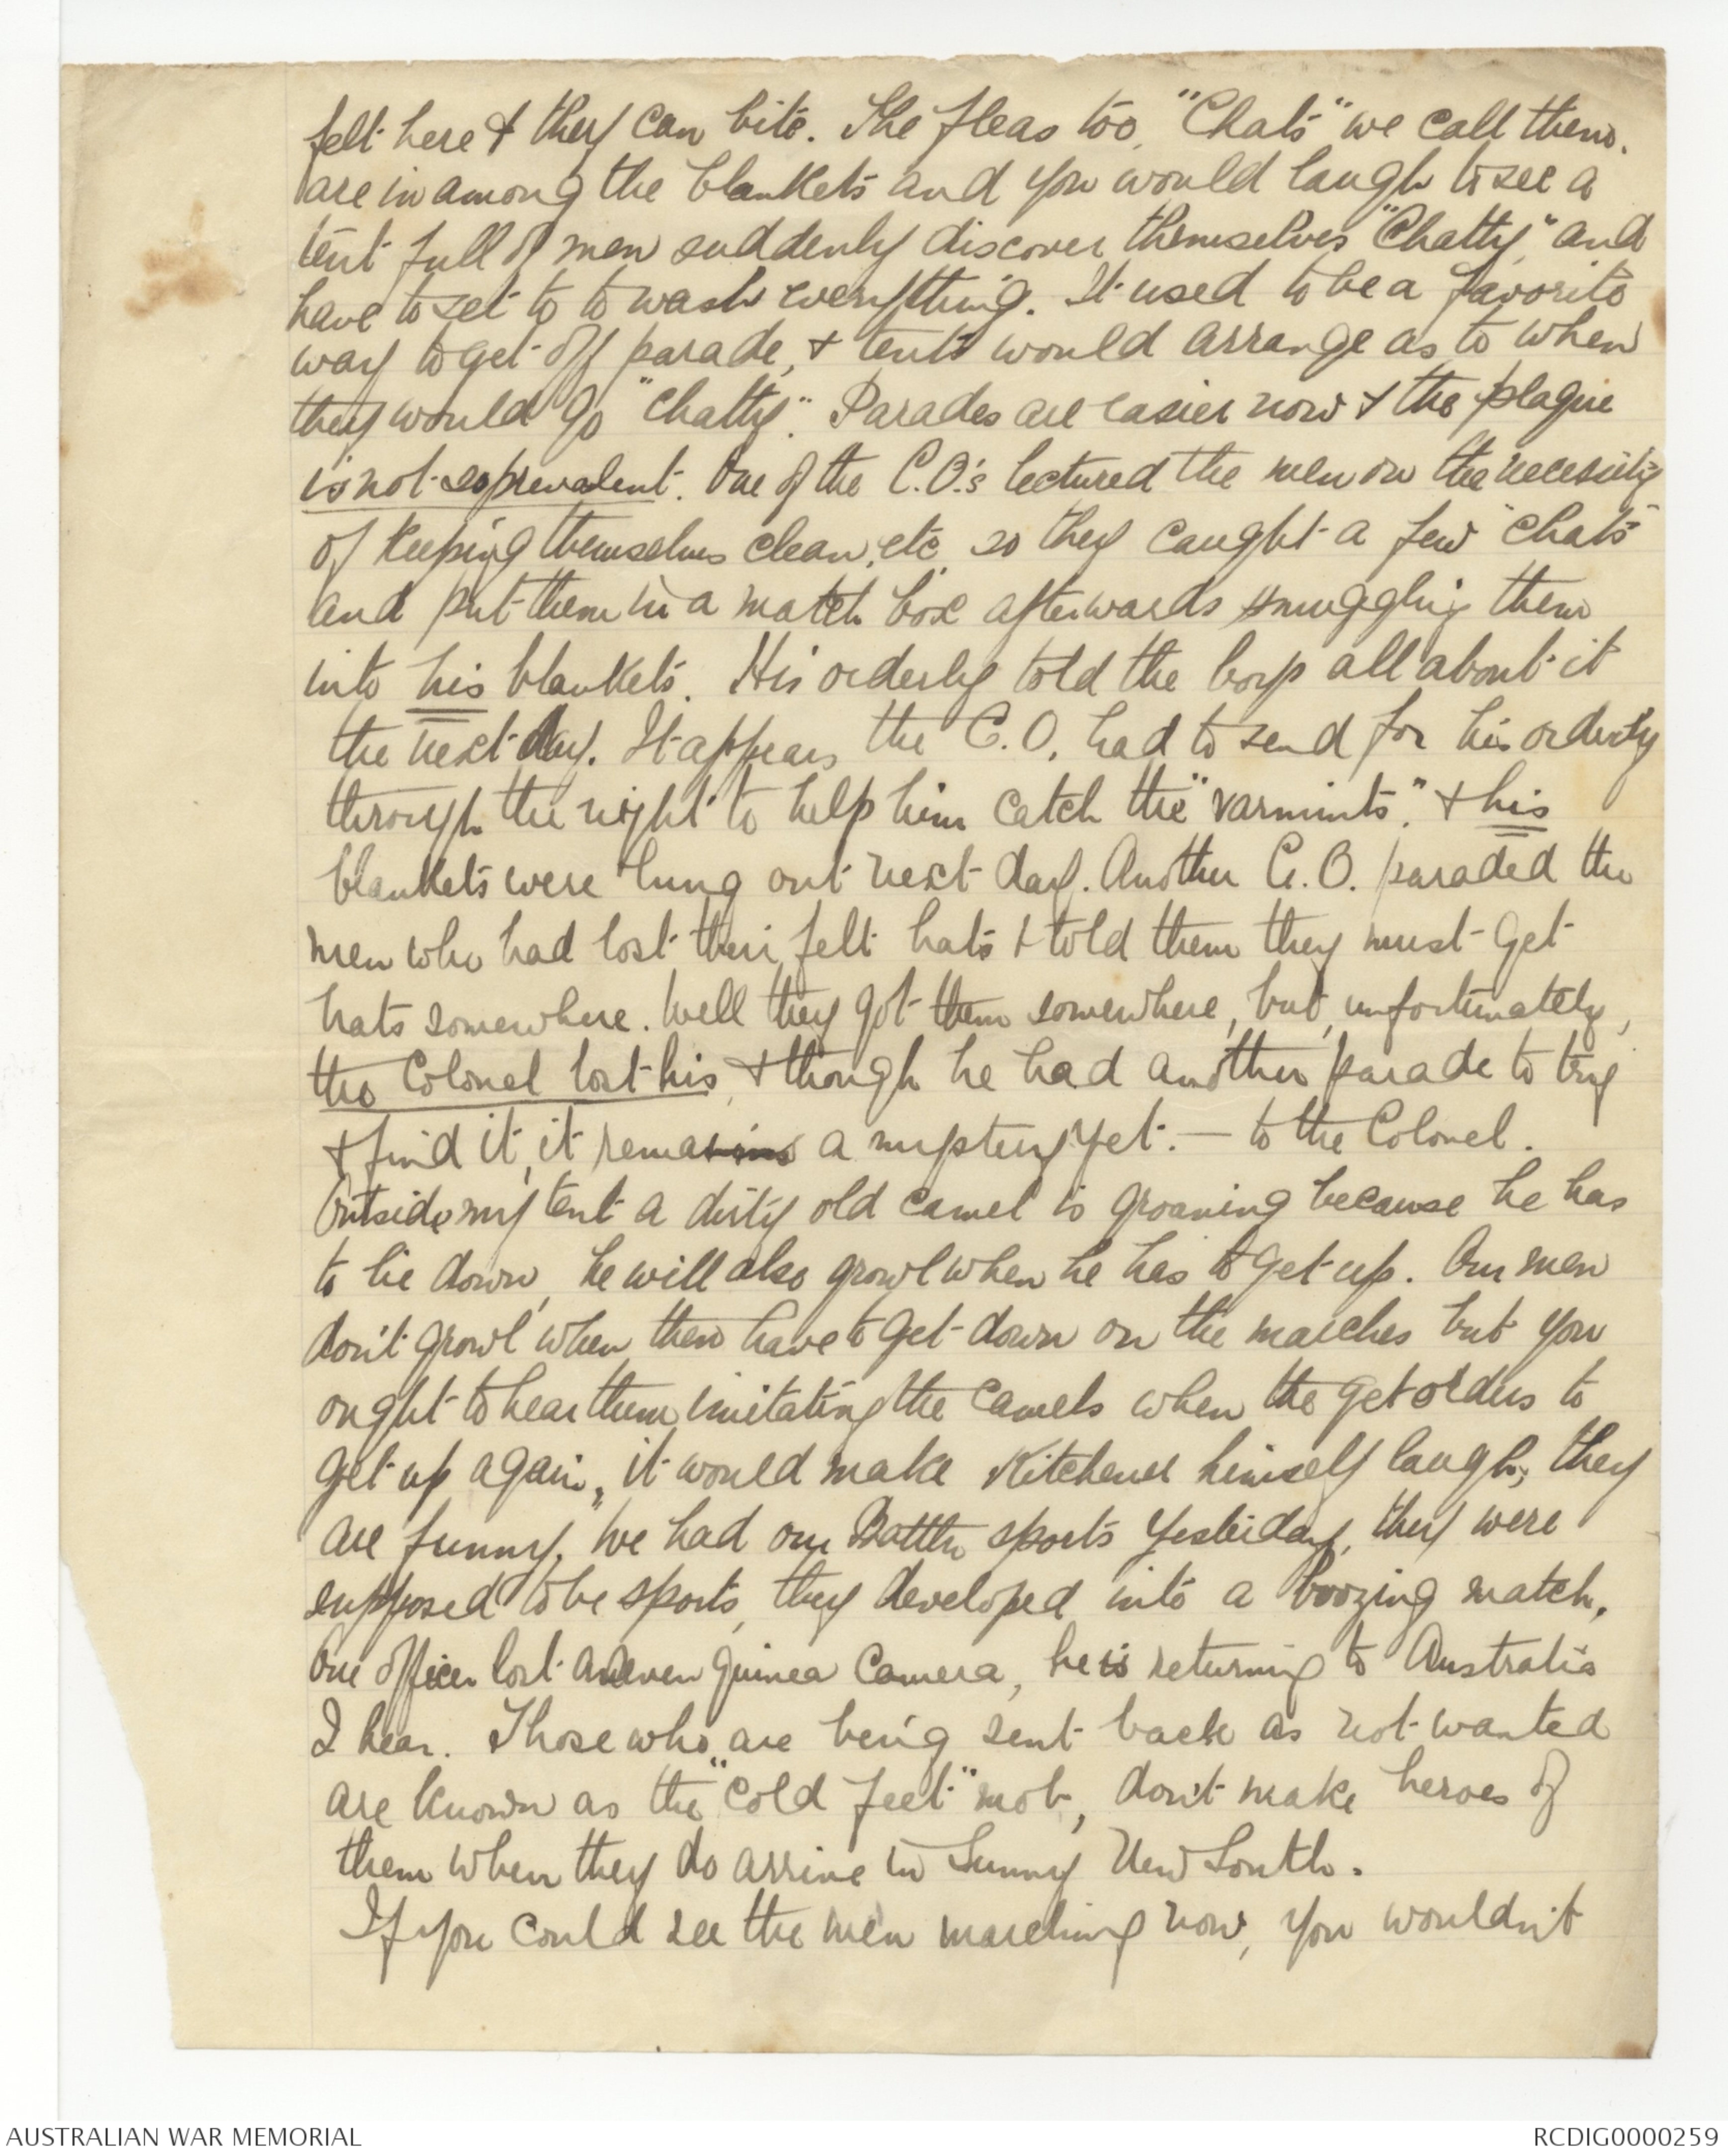 felt here & they can bite. The fleas too, "Chats" we call them.
are in among the blankets and you would laugh to see a
tent full of men suddenly discover themselves "Chatty," and
have to set to to wash everything. It used to be a favorite
way to get off parade, & tents would arrange as to when
they would go "chatty". Parades are easier now & the plague
is not so prevalent. One of the C.O.'s lectured the men on the necessity
of keeping themselves clean, etc. so they caught a few "chats"
and put them in a match box afterwards smuggling them
into his blankets. His orderly told the boys all about it
the next day. It appears the C.O. had to send for his orderly
through the night to help him catch the "varmints". & his
blankets were hung out next day. Another C.O. paraded the
men who had lost their felt hats & told them they must get
hats somewhere. Well they got them somewhere, but, unfortunately,
the Colonel lost his, & though he had another parade to try
& find it, it remains a mystery yet. — to the Colonel.
Outside my tent a dirty old camel is groaning because he has
to lie down, he will also growl when he has to get up. Our men
don't growl when then have to get down on the marches but you
ought to hear them imitating the camels when the get orders to
get up again, it would make Kitchener himself laugh, they
are funny. We had our Battn sports yesterday, they were
supposed to be sports, they developed into a boozing match.
One officer lost a seven guinea camera, he is returning to Australia
I hear. Those who are being sent back as not wanted
are known as the "cold feet" mob, don't make heroes of
them when they do arrive in Sunny New South.
If you could see the men marching now, you wouldn't
AUSTRALIAN WAR MEMORIAL
RCDIG0000259